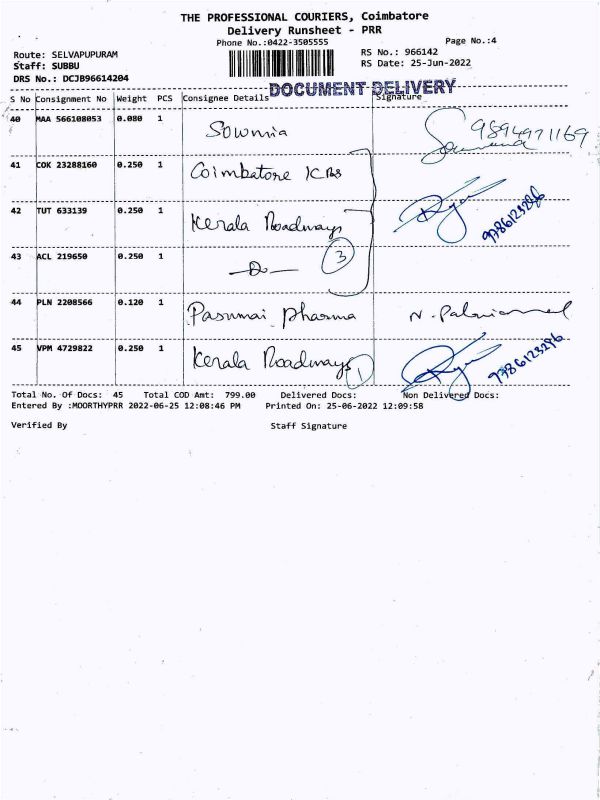 THE PROFESSIONAL COURIERS, Coimbatore
Delivery Runsheet - PRR
Phone No.:0422-3505555
Page No.:4
Route: SELVAPUPURAM
RS No.: 966142
Staff: SUBBU
RS Date: 25-Jun-2022
DRS No.: DCJB96614204
DOCUMENT DELIVERY
S No Consignment No Weight PCS Consignee Details Signature
40 MAA 566108053 0.080 1 Sowmia
41 COK 23288160 0.250 1 Coimbatore
42 TUT 633139 0.250 1 Kerala Roadways 9786123286
43 ACL 219650 0.250 1 -Do- 3
44 PLN 2208566 0.120 1 Pasumai Pharma
45 VPM 4729822 0.250 1 Kerala Roadways 1
Total No. Of Docs: 45 Total COD Amt: 799.00 Delivered Docs: Non Delivered Docs:
Entered By :MOORTHYPRR 2022-06-25 12:08:46 PM Printed On: 25-06-2022 12:09:58
Verified By Staff Signature